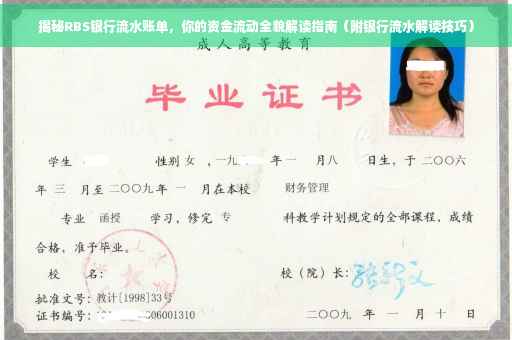 揭秘RBS银行流水账单，你的资金流动全貌解读指南（附银行流水解读技巧）
成人高等教育
毕业证书
学生 性别 女 ，一九 年一 月八 日生，于二〇〇六
年 三 月至二〇〇九年 一 月在本校 财务管理
专业 函授 学习，修完 专 科教学计划规定的全部课程，成绩
合格，准予毕业。
校 名： 校（院）长：
批准文号：教计[1998]33号
证书编号： 06001310 二〇〇九 年 一 月 十 日